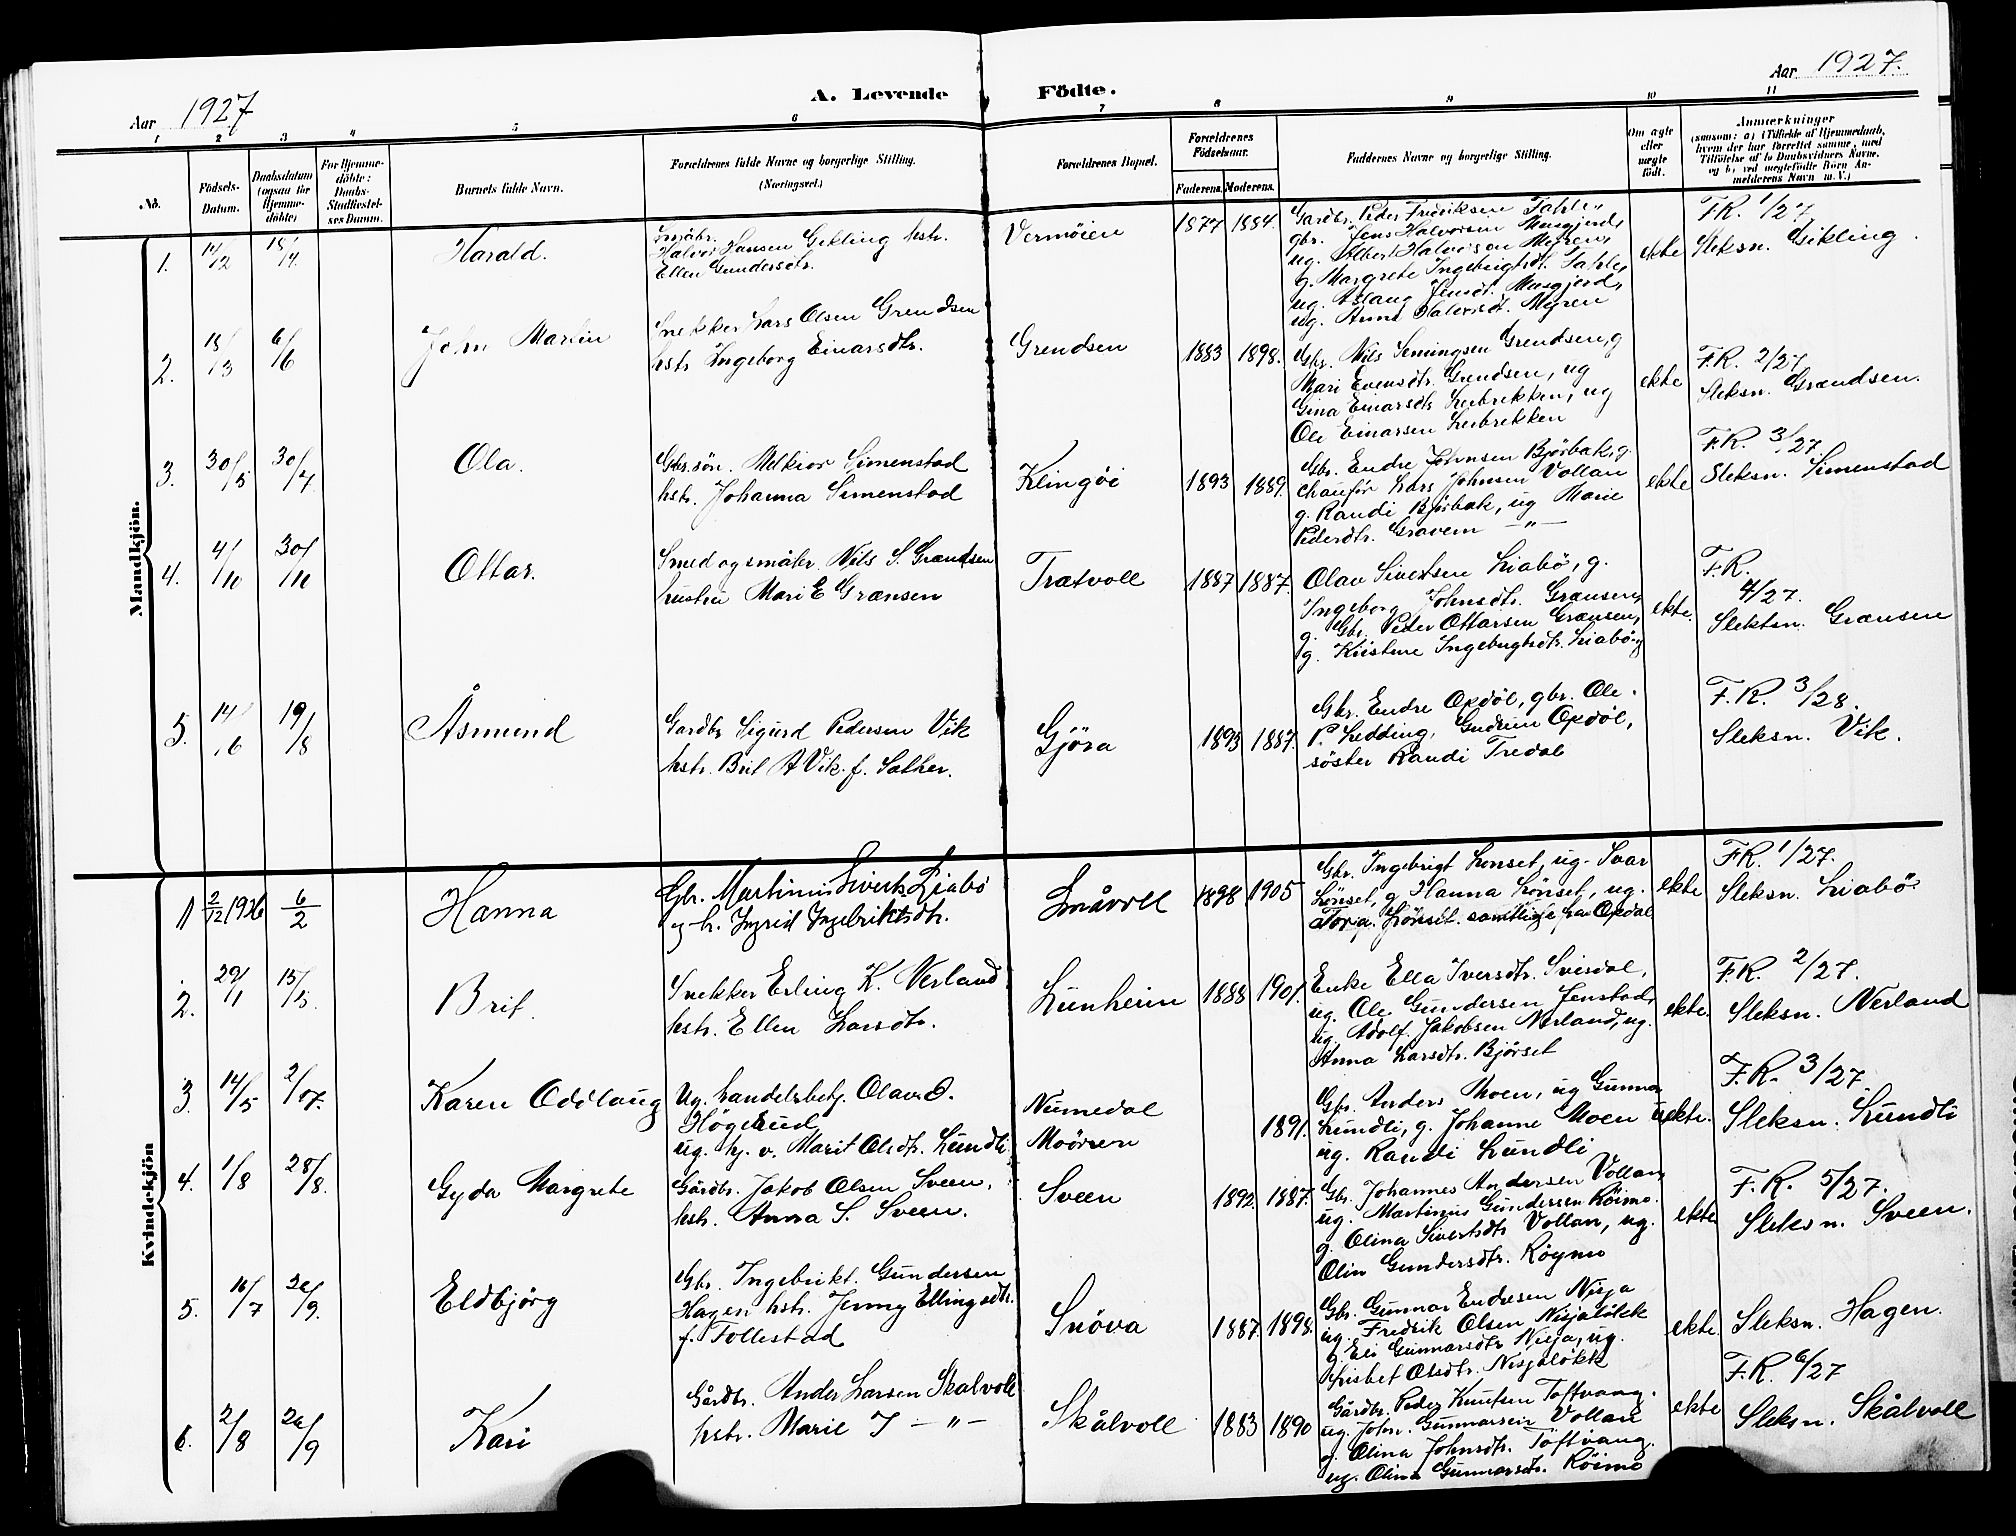 Aar 1927
A. Levende Födte.
Aar 1927.
1 2 3 4 5 6 7 8 9 10 11
No.
Födsels-Datum.
Daabsdatum (ogsaa for Hjemme-döbte)
For Hjemme-döbte: Daabs-Stadfæstel-ses Datum.
Barnets fulde Navn.
Forældrenes fulde Navne og borgerlige Stilling. (Næringsvei.)
Forældrenes Bopæl.
Forældrenes Födselsaar.
Faderens. Moderens.
Faddernes Navne og borgerlige Stilling.
Om ægte eller uægte födt.
Anmærkninger
(saasom: a) i Tilfælde af Hjemmedaab, hvem der har forrettet samme, med Tilföielse af to Daabsvidners Navne, og b) ved uægtefödte Börn An-melderens Navn m. V.)
Mandkjön.
1. 14/12 18/4 Harald.
Småbr. Halvor Hansen Gikling hstr.
Ellen Gundersdtr.
Vermöien 1877 1884.
Gardbr. Peder Fredriksen Fahle,
gbr. Jens Halvorsen Musgjerd,
ug. Albert Halvorsen Myren,
g. Margrete Ingebrigtsdt. Fahle,
ug. Aslaug Jensdt. Musgjerd,
ug. Anna Halvorsdt. Myren
ekte
F.R. 1/27
Sleksn. Gikling.
2. 13/3 6/6 John Martin
Snekker Lars Olsen Grendsen
hstr. Ingeborg Einarsdtr.
Grendsen 1883 1898.
Gbr. Nils Semingsen Grendsen, g
Mari Evensdtr. Grendsen, ug
Gina Einarsdtr. Leirbrekken, ug
Ole Einarsen Leirbrekken
ekte
F.R. 2/27
Sleksn. Grændsen.
3. 30/5 30/7. Ola.
Gbr.sön. Melkior Simenstad
hstr. Johanna Simenstad
Klingöi 1893 1889.
Gbr. Endre Johnsen Björbak, g.
chauför Lars Johnsen Vollan
g. Randi Björbak, ug Marie
Pedersdtr. Gravem — " —
ekte
F.R. 3/27.
Sleksn. Simenstad
4. 4/10 30/10 Ottar.
Smed og småbr. Nils S. Grændsen
hustru Mari E Grænsen
Trætvoll 1887 1887.
Olav Sivertsen Liabö, g.
Ingeborg Johnsdtr. Grænsen,
g. Gbr. Peder Ottarsen Grænsen,
g. Kristine Ingebrigtsdtr. Liabö g
ekte.
F.R.
4/27.
Slektsn. Grænsen
5. 14/6 19/8 Åsmund
Gardbr Sigurd Pedersen Vik
hstr. Brit A Vik. f. Sæther.
Gjöra 1893 1887.
Gbr. Endre Opdöl, gbr. Ole
P. Hedding, Gudrun Opdöl,
söster Randi Tredal
F.R. 3/28.
Sleksn. Vik.
Kvindekjön
1 2/12 1926 6/2 Hanna
Gbr. Martinus Siverts Liabö
og h. Ingrid Ingebriktsdtr.
Småvoll 1898 1905
Gbr. Ingebrigt Lönset, ug. Ivar
Lönset, g Hanna Lönset, ug.
Torja. Lönset. samtlige fra Opdal
ekte
F.R. 1/27.
Sleksn. Liabö
2. 29/1 15/5. Brit.
Snekker Erling K. Nerland
hstr. Ellen Larsdtr.
Lunheim 1888 1901.
Enke Ella Iversdtr. Svisdal,
ug. Ole Gundersen Jenstad,
ug. Adolf. Jakobsen Nerland, ug.
Anna Larsdtr. Björset
ekte.
F.R. 2/27.
Sleksn. Nerland
3. 14/5 2/07. Karen Oddlaug
Ug. handelsbetj. Olav O.
Högerud
ug. hj. v. Marit Olsdtr. Lundli
Numedal
Moörsen
1891.
Gbr. Anders Moen, ug Gunnar
Lundli, g. Johanne Moen
ug. Randi Lundli
uekte.
F.R. 3/27.
Sleksn. Lundli
4. 1/8 28/8. Gyda Margrete
Gårdbr. Jakob Olsen Sveen,
hstr. Anna S. Sveen.
Sveen 1892 1887.
Gbr. Johannes Andersen Vollan,
ug. Martinus Gundersen Röimo.
g. Olina Sivertsdtr Vollan, ug.
Olin Gundersdtr. Röymo
ekte
F.R. 5/27.
Sleksn. Sveen.
5. 16/7 26/9. Eldbjörg
Gbr Ingebrikt. Gundersen
Hagen hstr. Jenny Ellingsdtr.
f. Tollestad
Snöva 1887. 1898.
Gbr. Gunnar Endresen Nisja
ug. Fredrik Olsen Nisjalökk
g. Eli Gunnarsdtr. Nisja, ug.
Lisbet Olsdtr. Nisjalökk
ekte.
Sleksn. Hagen.
6. 2/8 26/9 Kari
Gårdbr. Ander Larsen Skålvoll
hstr. Marie J — " —
Skålvoll 1883 1890
Gårdbr. Peder Knutsen Toftvang.
ug. John. Gunnarsen Vollan
g. Olina Johnsdtr. Toftvang.
ug. Olina Gunnarsdtr. Röimo
ekte
F.R. 6/27
Sleksn. Skålvoll